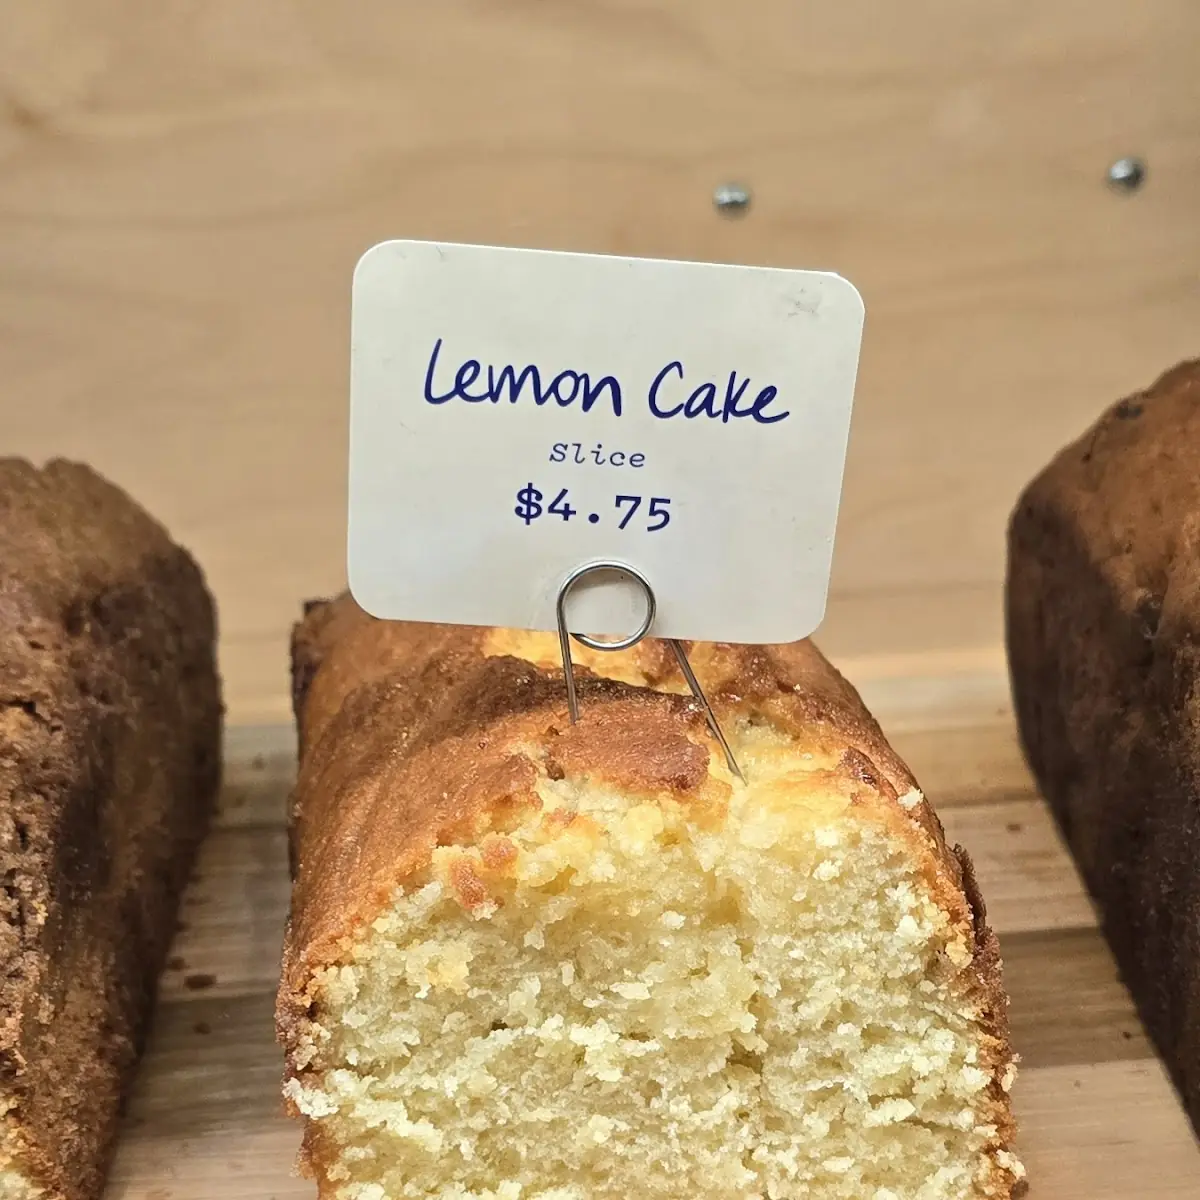 Lemon Cake
Slice
$4.75